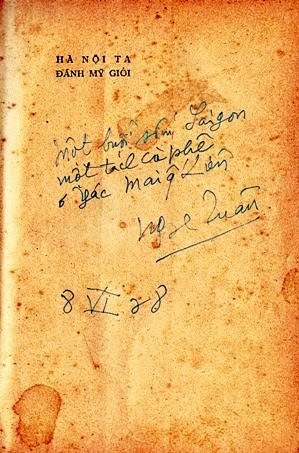 HÀ NỘI TA
ĐÁNH MỸ GIỎI
Một buổi sớm Saigon
một tách cà phê
ở gác Mai Q Liên
Ng Tuân
8 VI 28